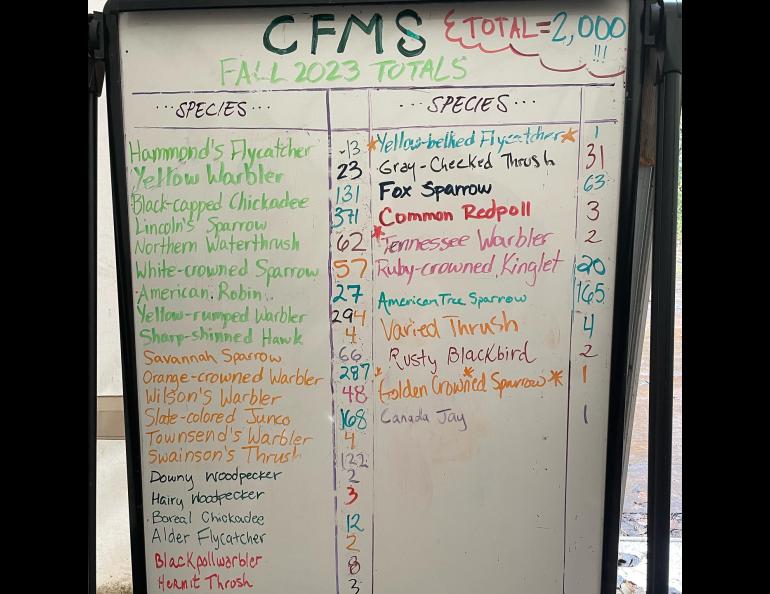 CFMS
ΣTOTAL=2,000
!!!
FALL 2023 TOTALS
...SPECIES...
Hammond's Flycatcher 13
Yellow Warbler 23
Black-capped Chickadee 131
Lincoln's Sparrow 371
Northern Waterthrush 62
White-crowned Sparrow 57
American Robin 27
Yellow-rumped Warbler 294
Sharp-shinned Hawk 4
Savannah Sparrow 66
Orange-crowned Warbler 287
Wilson's Warbler 48
Slate-colored Junco 168
Townsend's Warbler 4
Swainson's Thrush 122
Downy Woodpecker 2
Hairy Woodpecker 3
Boreal Chickadee 12
Alder Flycatcher 2
Blackpollwarbler 8
Hermit Throsh 3
...SPECIES...
*Yellow-bellied Flycatcher* 1
Gray-Checked Thrush 31
Fox Sparrow 63
Common Redpoll 3
*Tennessee Warbler 2
Ruby-crowned Kinglet 20
American Tree Sparrow 165
Varied Thrush 4
Rusty Blackbird 2
*Golden Crowned Sparrow* 1
Canada Jay 1